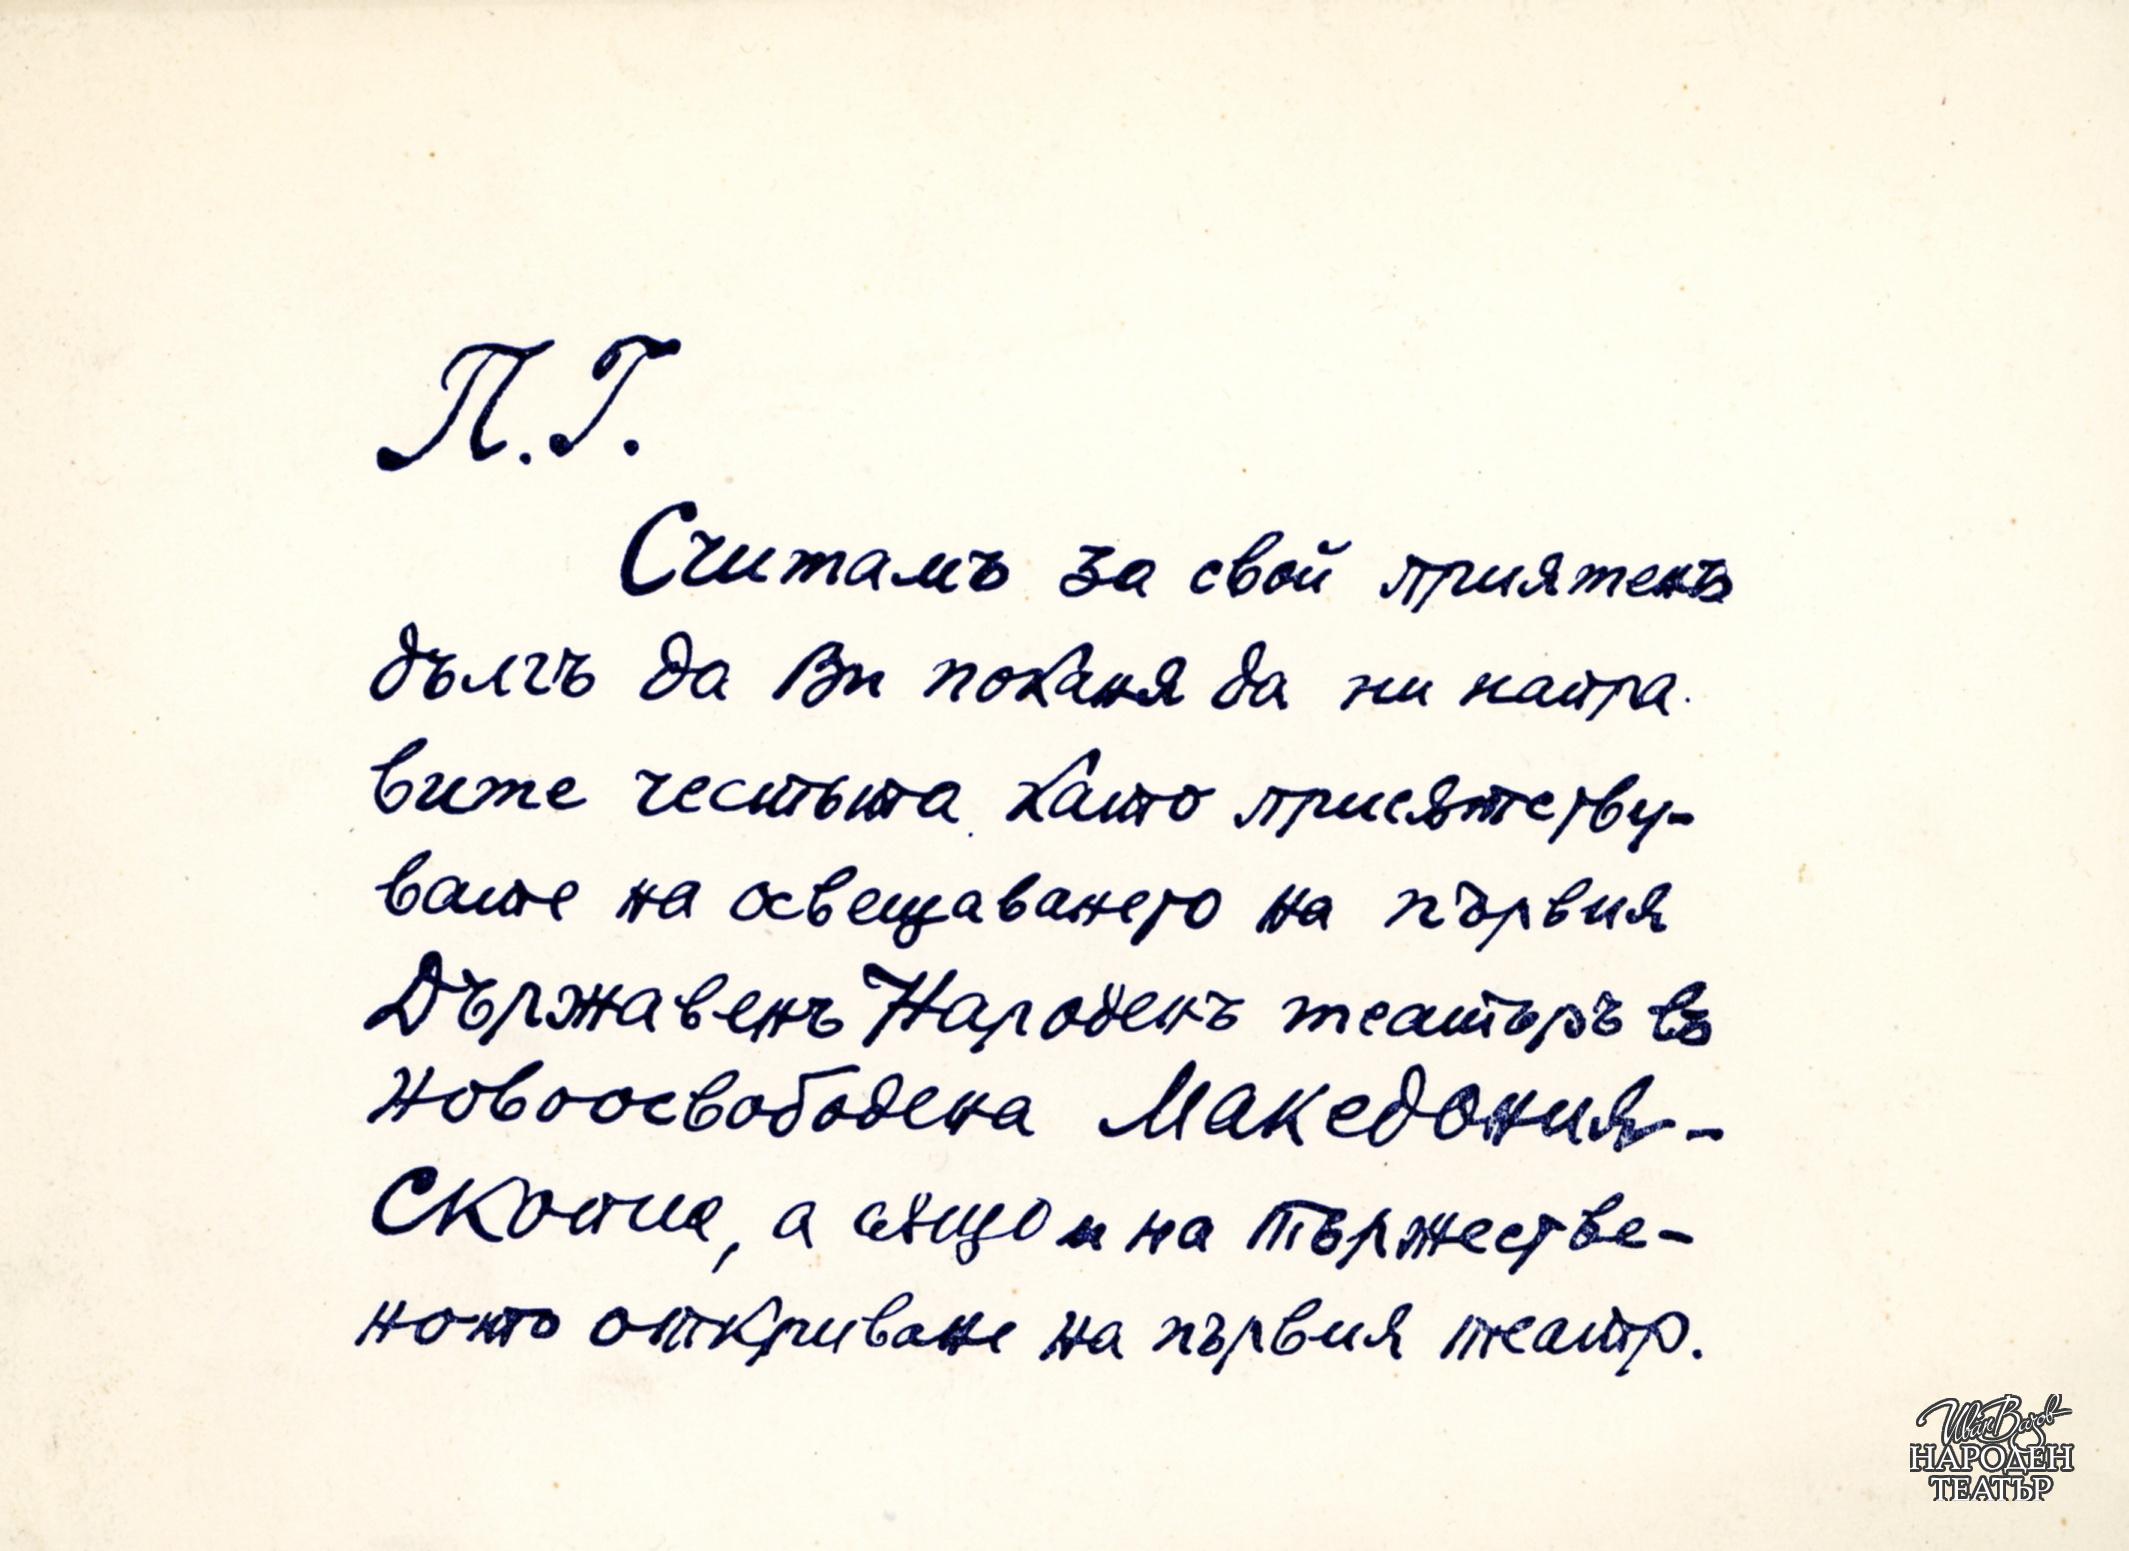 П.Г.
Считамъ за свой приятенъ
дългъ да Ви поканя да ни напра-
вите честьта като присѫтству-
вате на освещаването на първия
Държавенъ Народенъ театъръ въ
новоосвободена Македония -
Скопие, а сѫщо и на тържестве-
ното откриване на първия театр.
Иван Вазов
НАРОДЕН
ТЕАТЪР